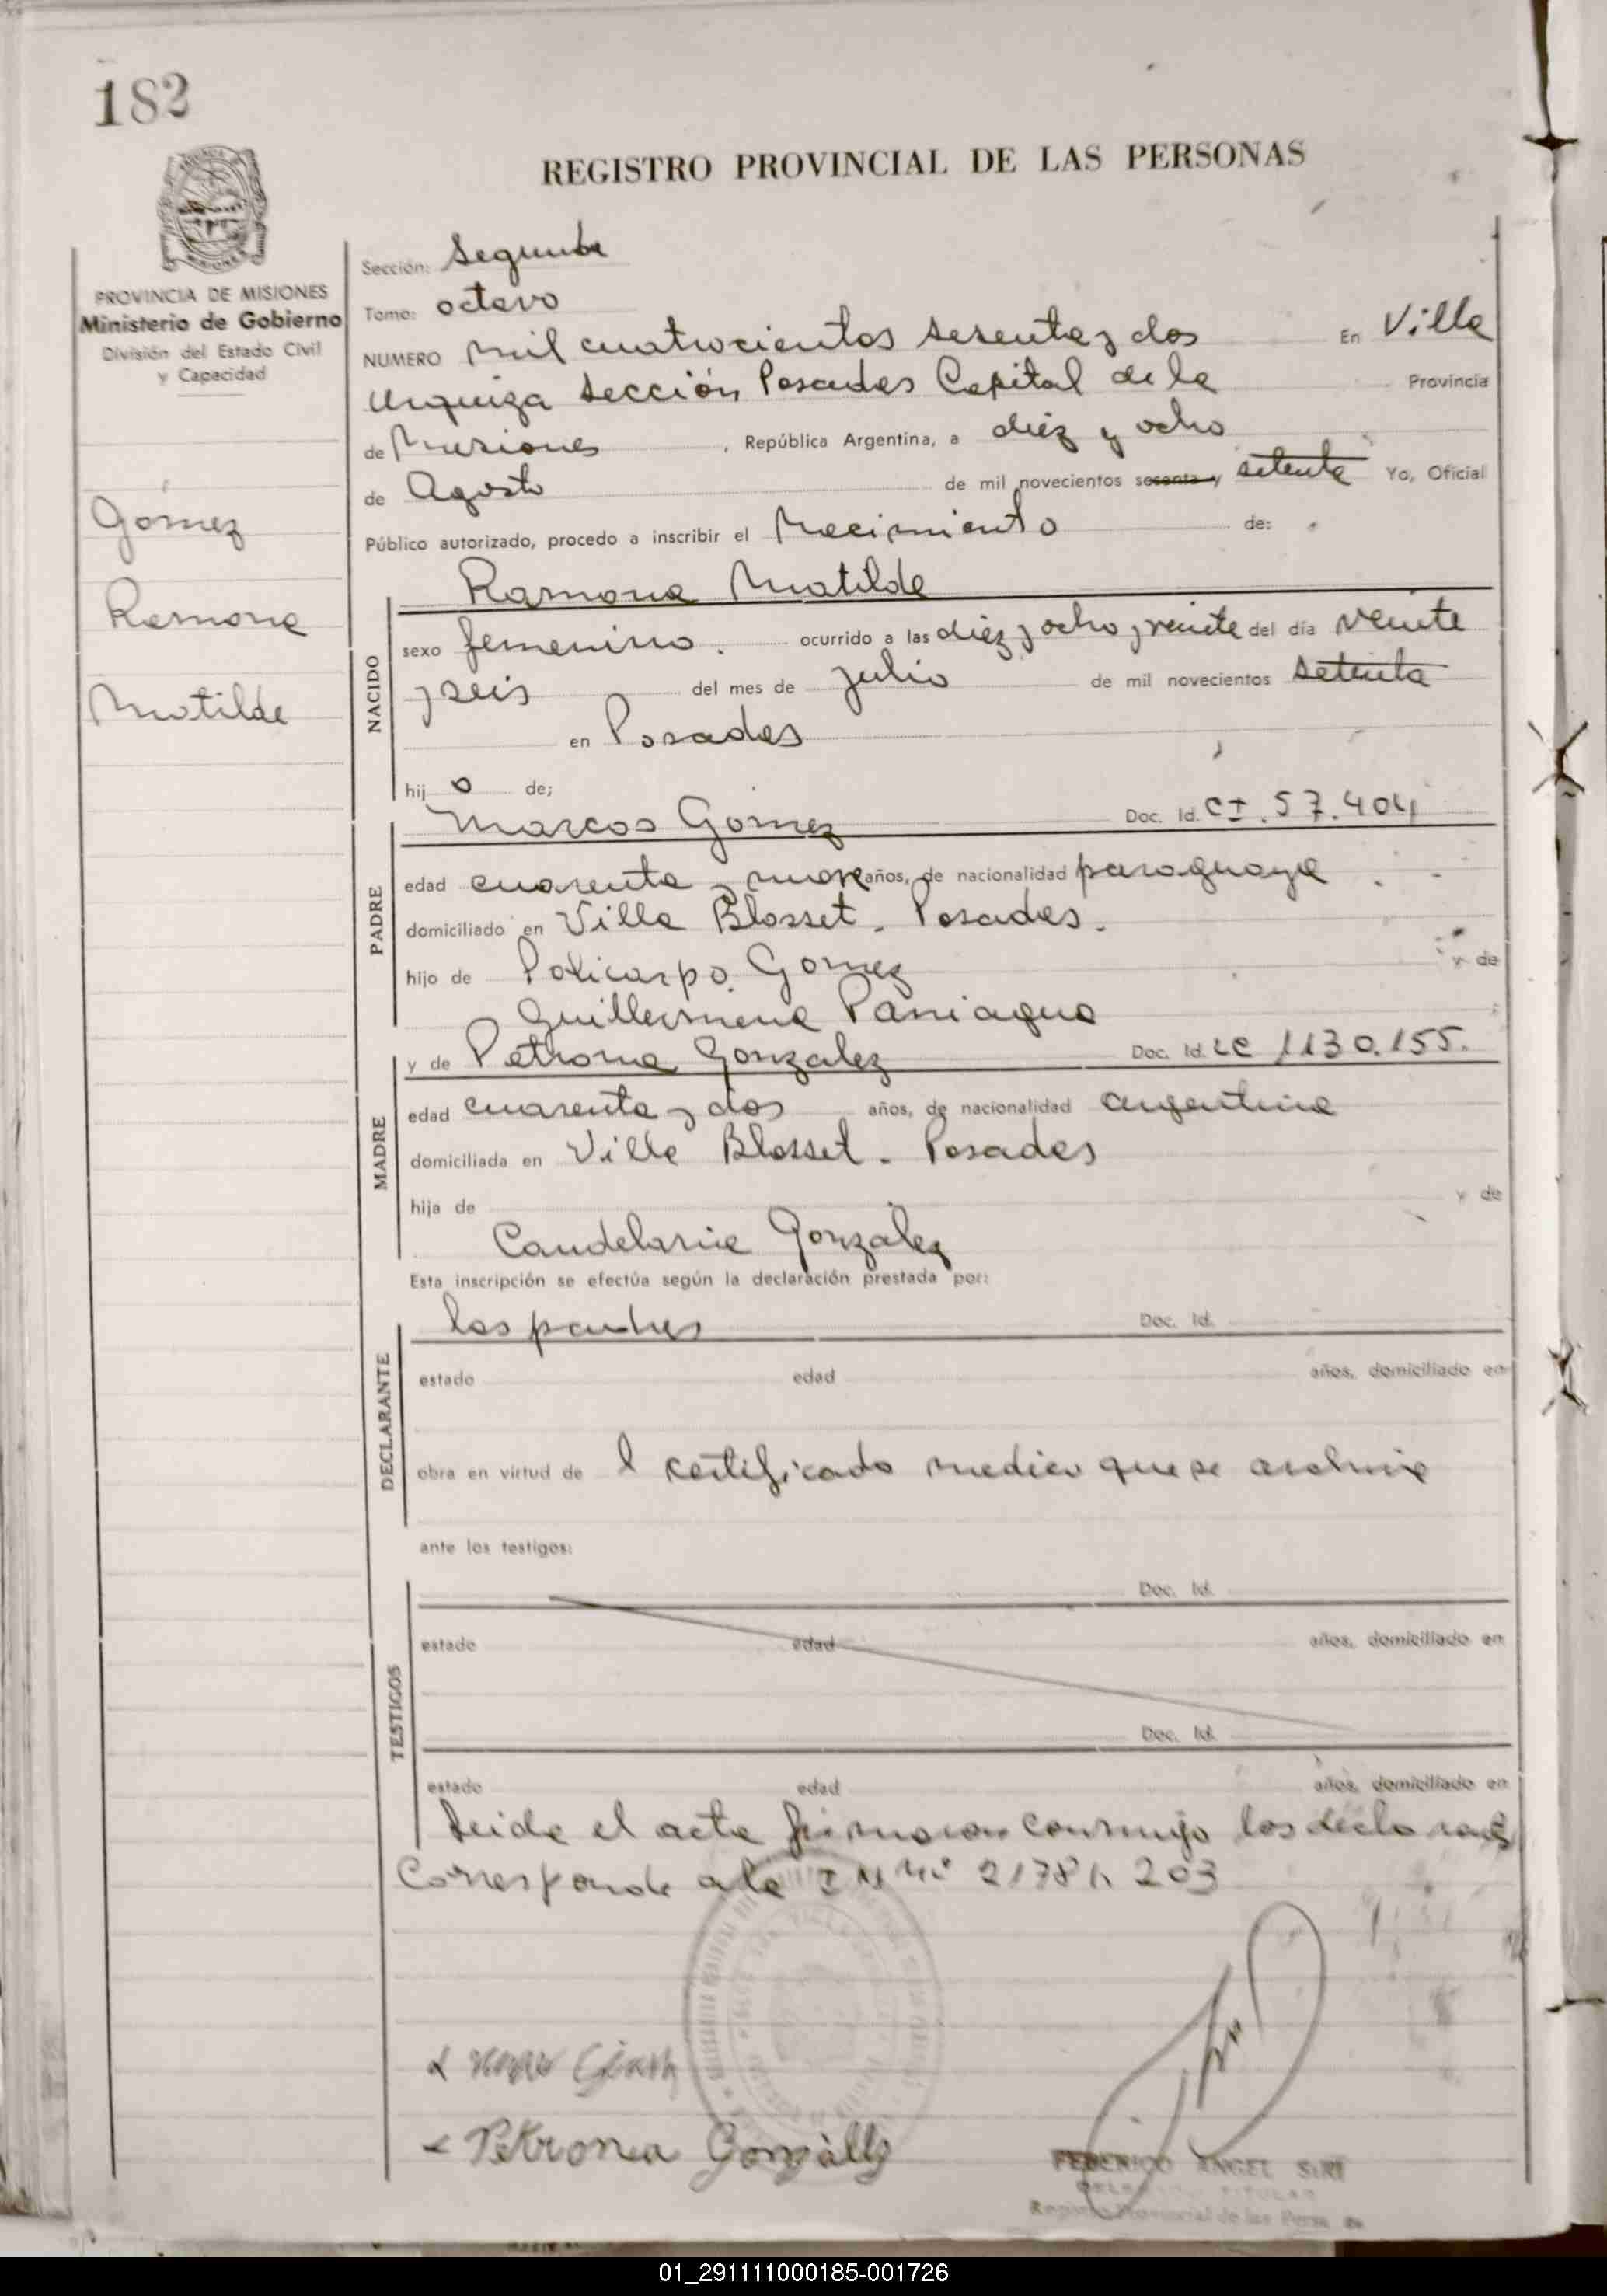 182
REGISTRO PROVINCIAL DE LAS PERSONAS
PROVINCIA DE MISIONES
Ministerio de Gobierno
División del Estado Civil
y Capacidad
Gomez
Ramona
Matilde
Sección: Segunda
Tomo: octavo
NUMERO mil cuatrocientos sesenta y dos En Villa
Urquiza Sección Posadas Capital de la Provincia
de Misiones, República Argentina, a diez y ocho
de Agosto de mil novecientos sesenta y setenta Yo, Oficial
Público autorizado, procedo a inscribir el Nacimiento de:
NACIDO
Ramona Matilde
sexo femenino. ocurrido a las diez y ocho y veinte del día veinte
y seis del mes de julio de mil novecientos setenta
en Posadas
hij a de;
PADRE
Marcos Gomez Doc. Id. CI. 57.404
edad cuarenta y nueve años, de nacionalidad paraguaya
domiciliado en Villa Blosset - Posadas.
hijo de Policarpo Gomez y de
Guillermina Paniagua
MADRE
y de Petrona Gonzalez Doc. Id. LC 1130.155.
edad cuarenta y dos años, de nacionalidad argentina
domiciliada en Villa Blosset - Posadas
hija de y de
Candelaria Gonzalez
Esta inscripción se efectúa según la declaración prestada por:
DECLARANTE
los padres Doc. Id.
estado edad años, domiciliado en
obra en virtud de l certificado medico que se archiva
ante los testigos:
TESTIGOS
Doc. Id.
estado edad años, domiciliado en
Doc. Id.
estado edad años, domiciliado en
Leida el acta firmaron conmigo los
Corresponde a la
Petrona Gonzàlez
FEDERICO ANGEL SIRI
TITULAR
Registro Provincial de las Personas
01_291111000185-001726